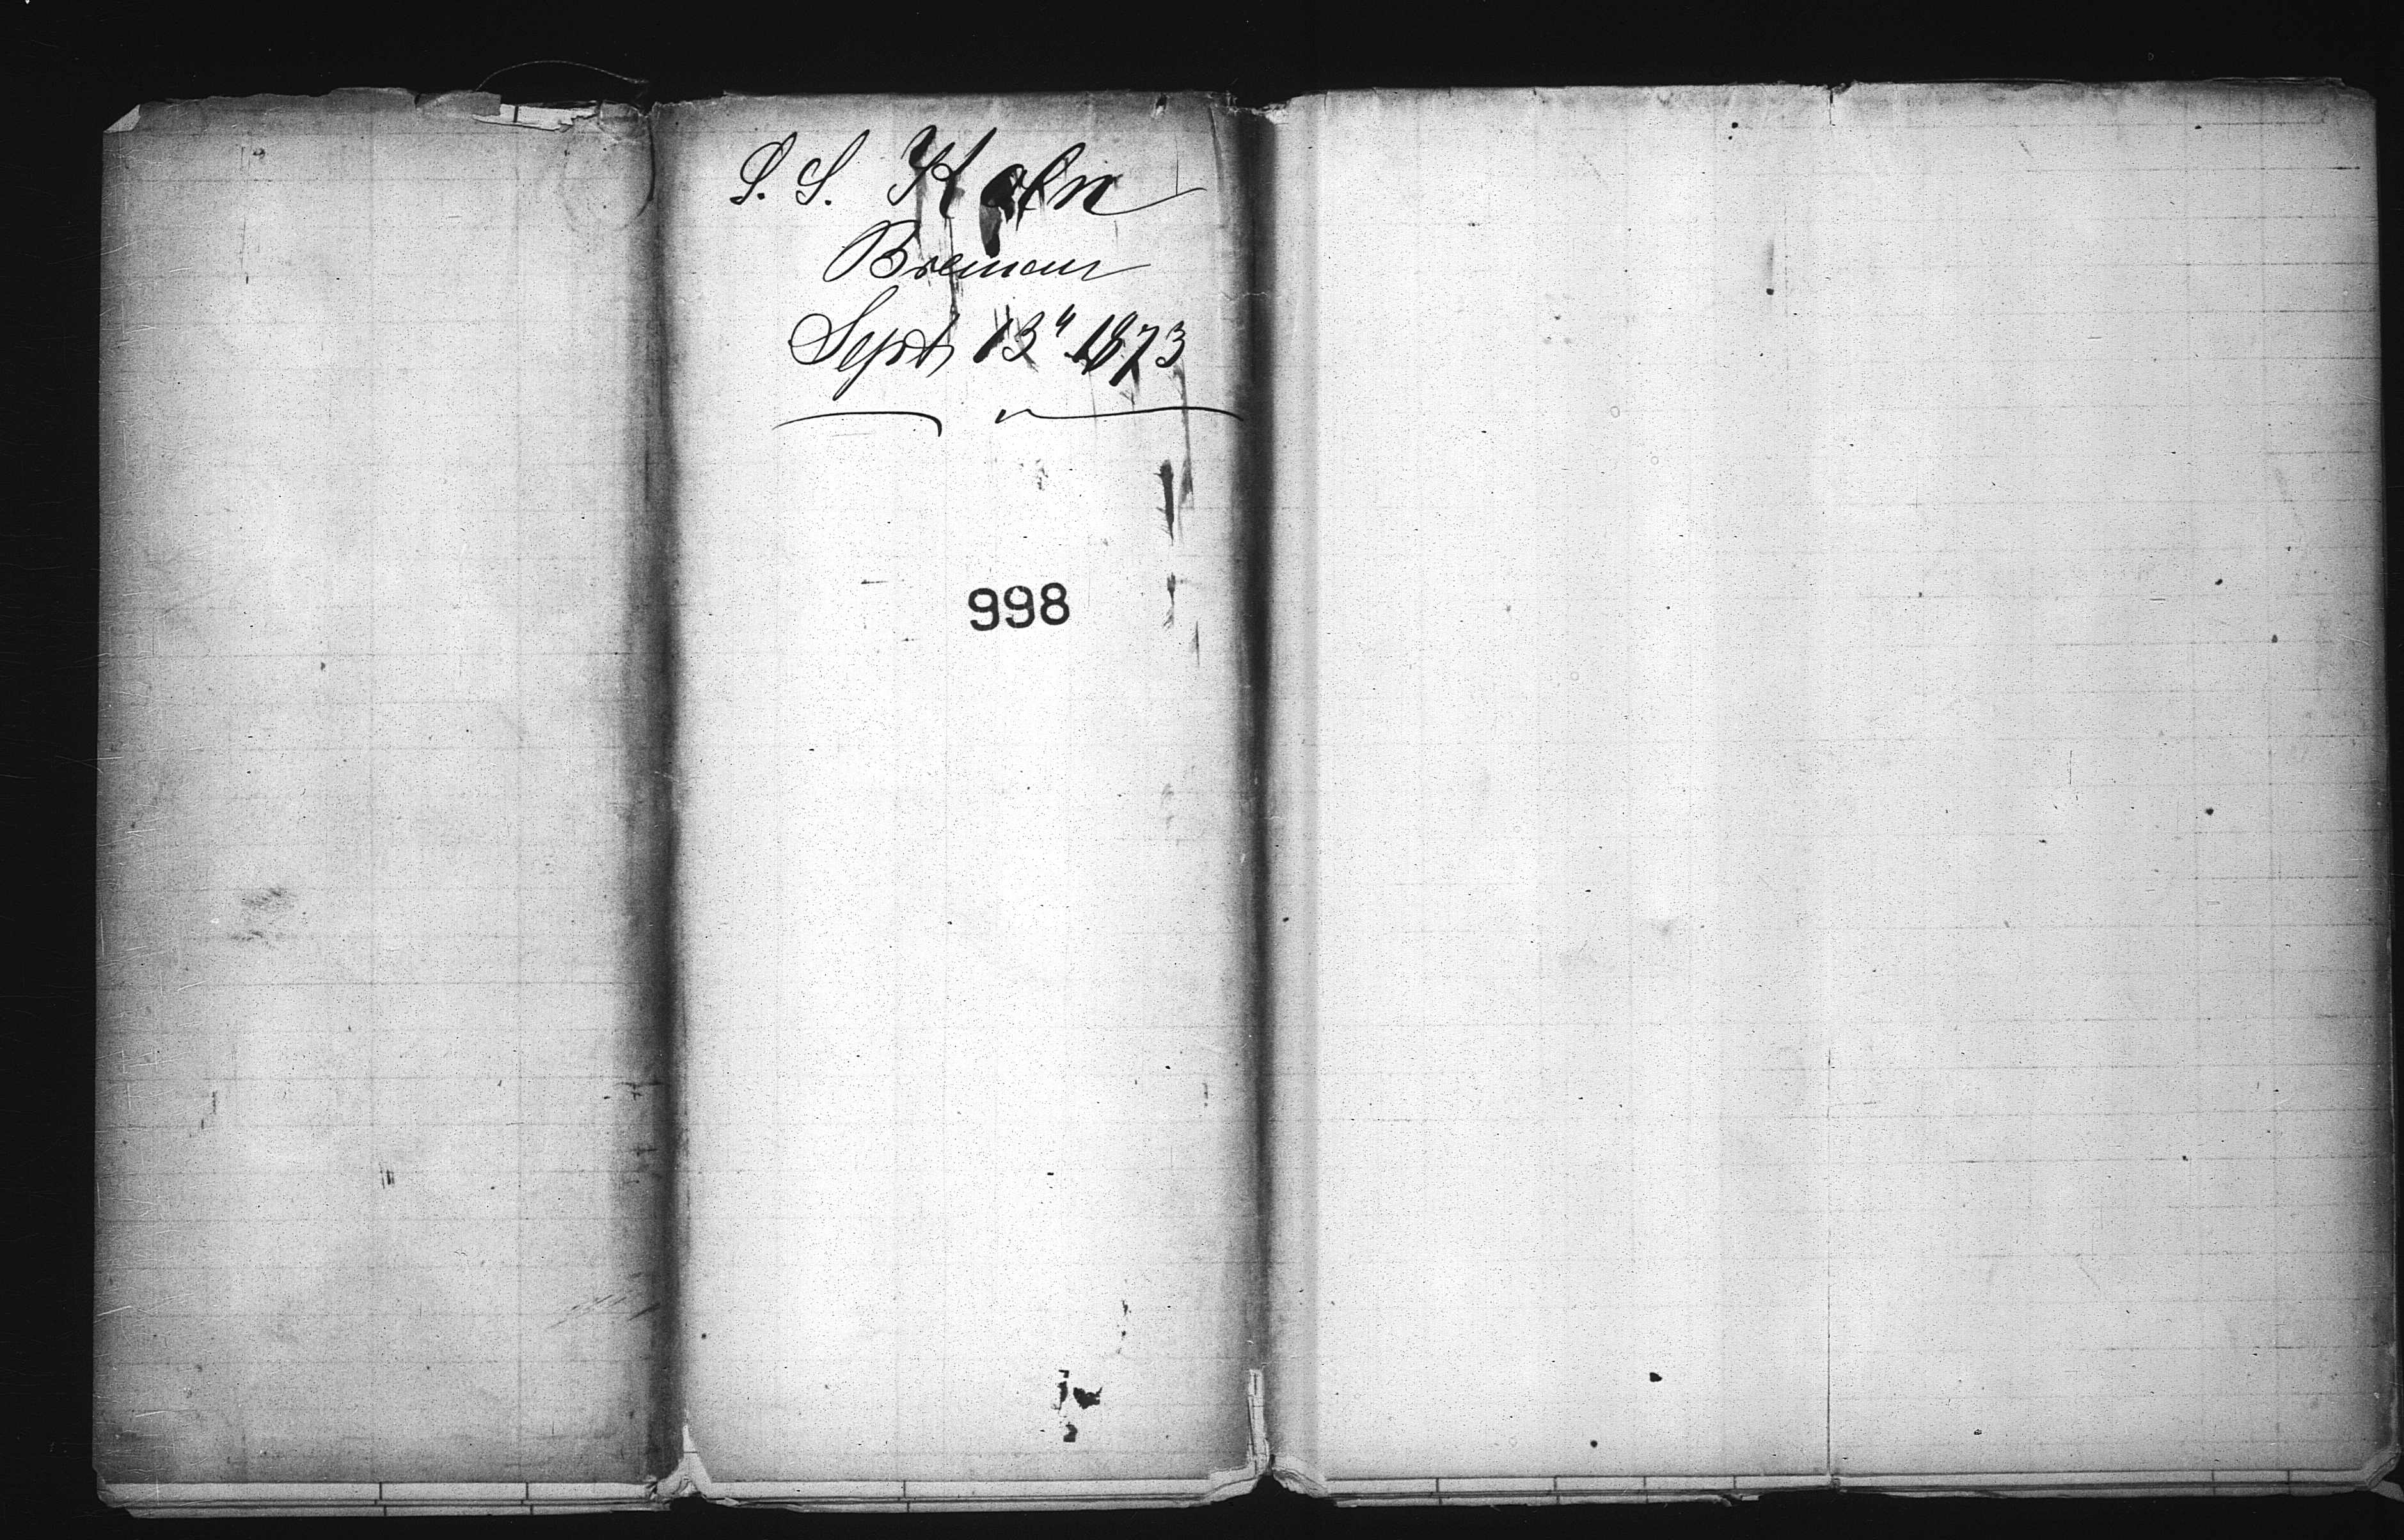 S. S. Koln
Bremen
Sept 13" 1873
998